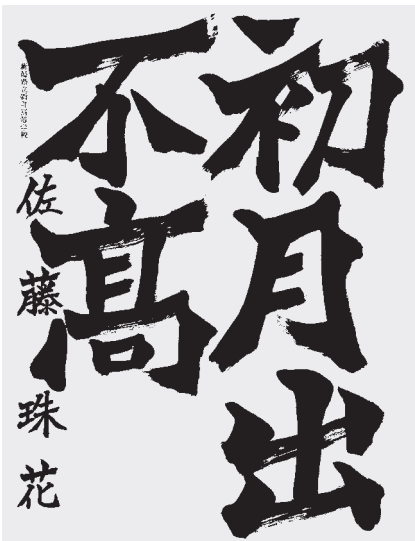 初月出
不髙
佐藤珠花